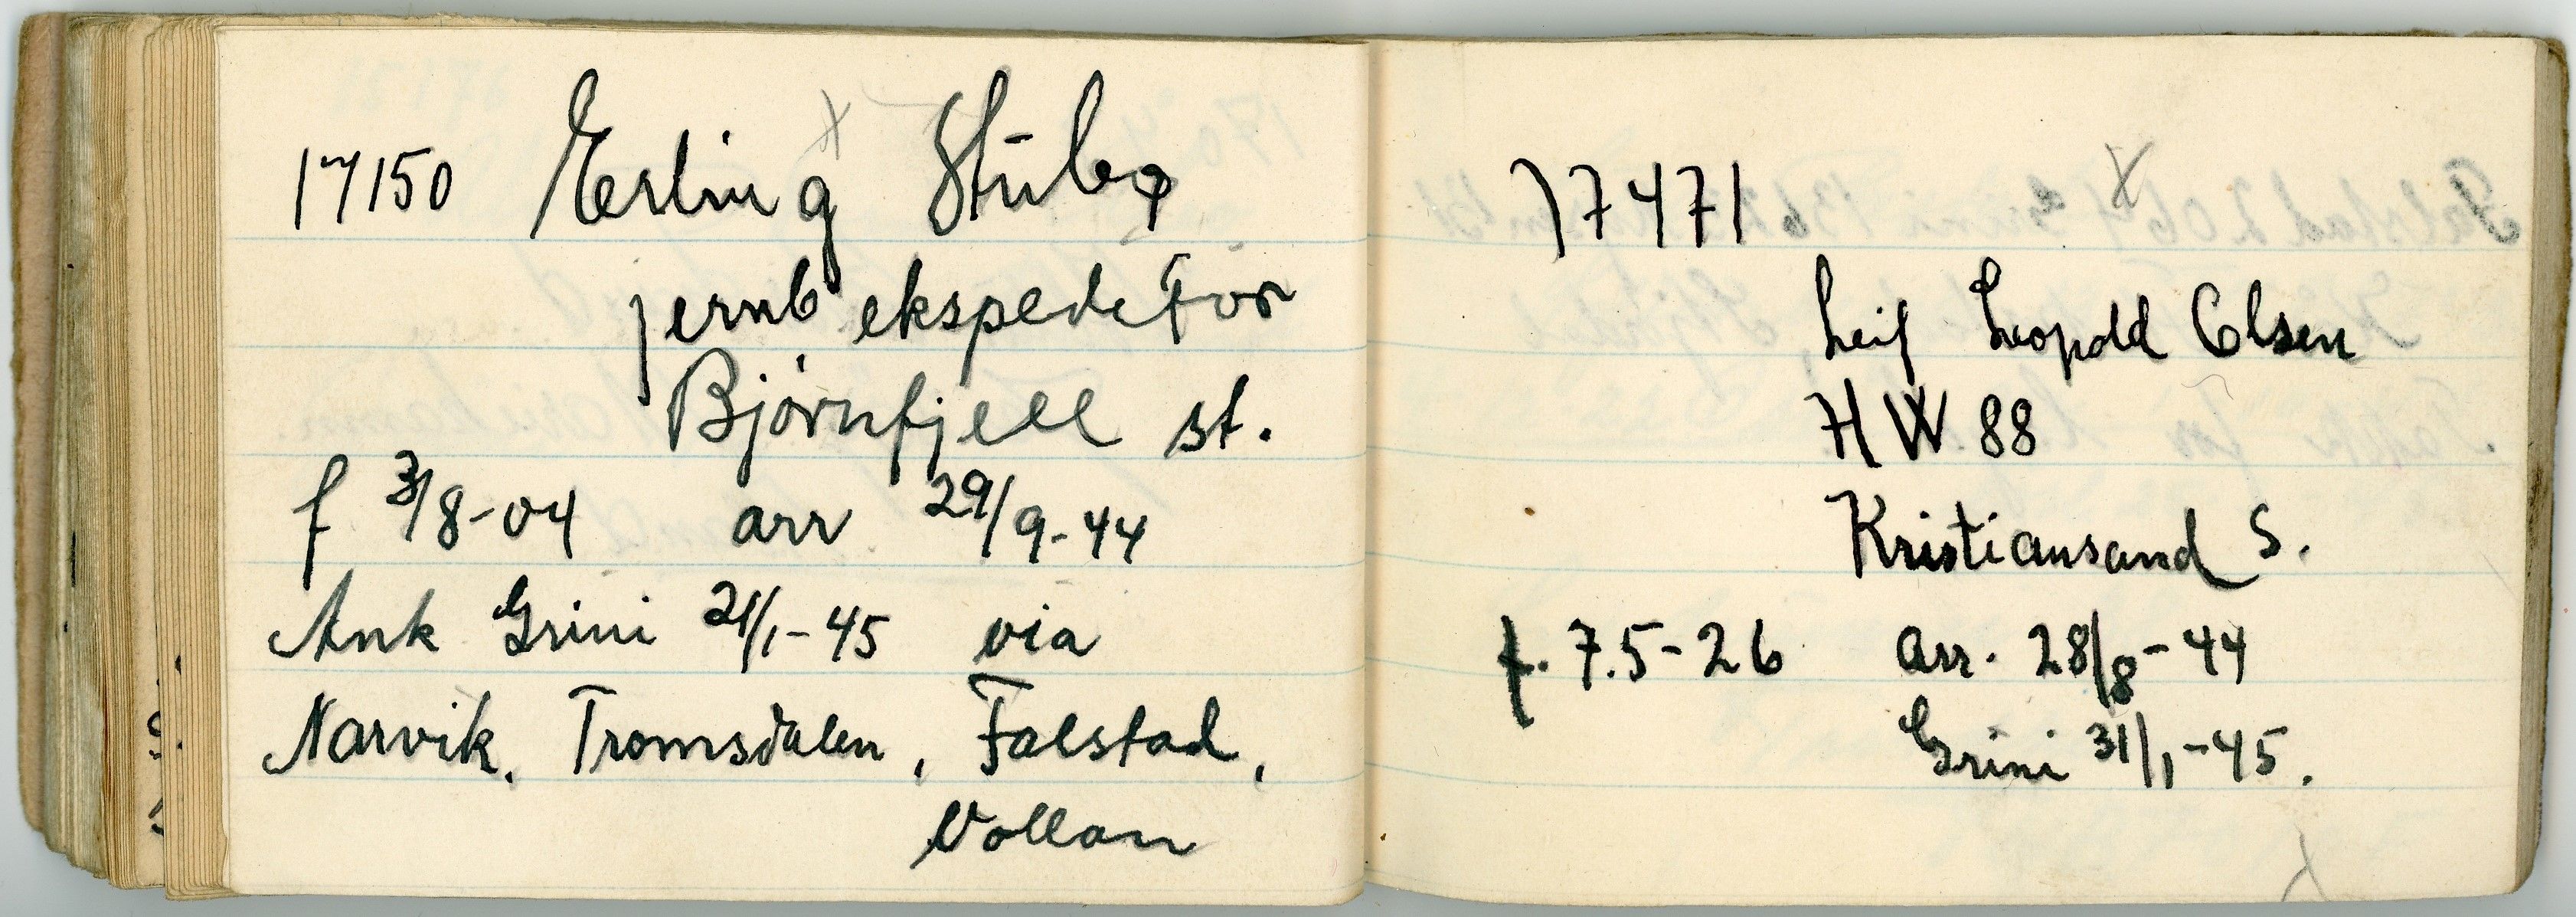 17150 Erling Stubø
jernb ekspeditør
Bjørnfjell st.
f 3/8-04 arr 29/9-44
Ank Grini 21/1-45 via
Narvik, Tromsdalen, Falstad,
Vollan
17471
Leif Leopold Olsen
H W 88
Kristiansand S.
f. 7.5-26 arr. 28/8-44
Grini 31/1-45.